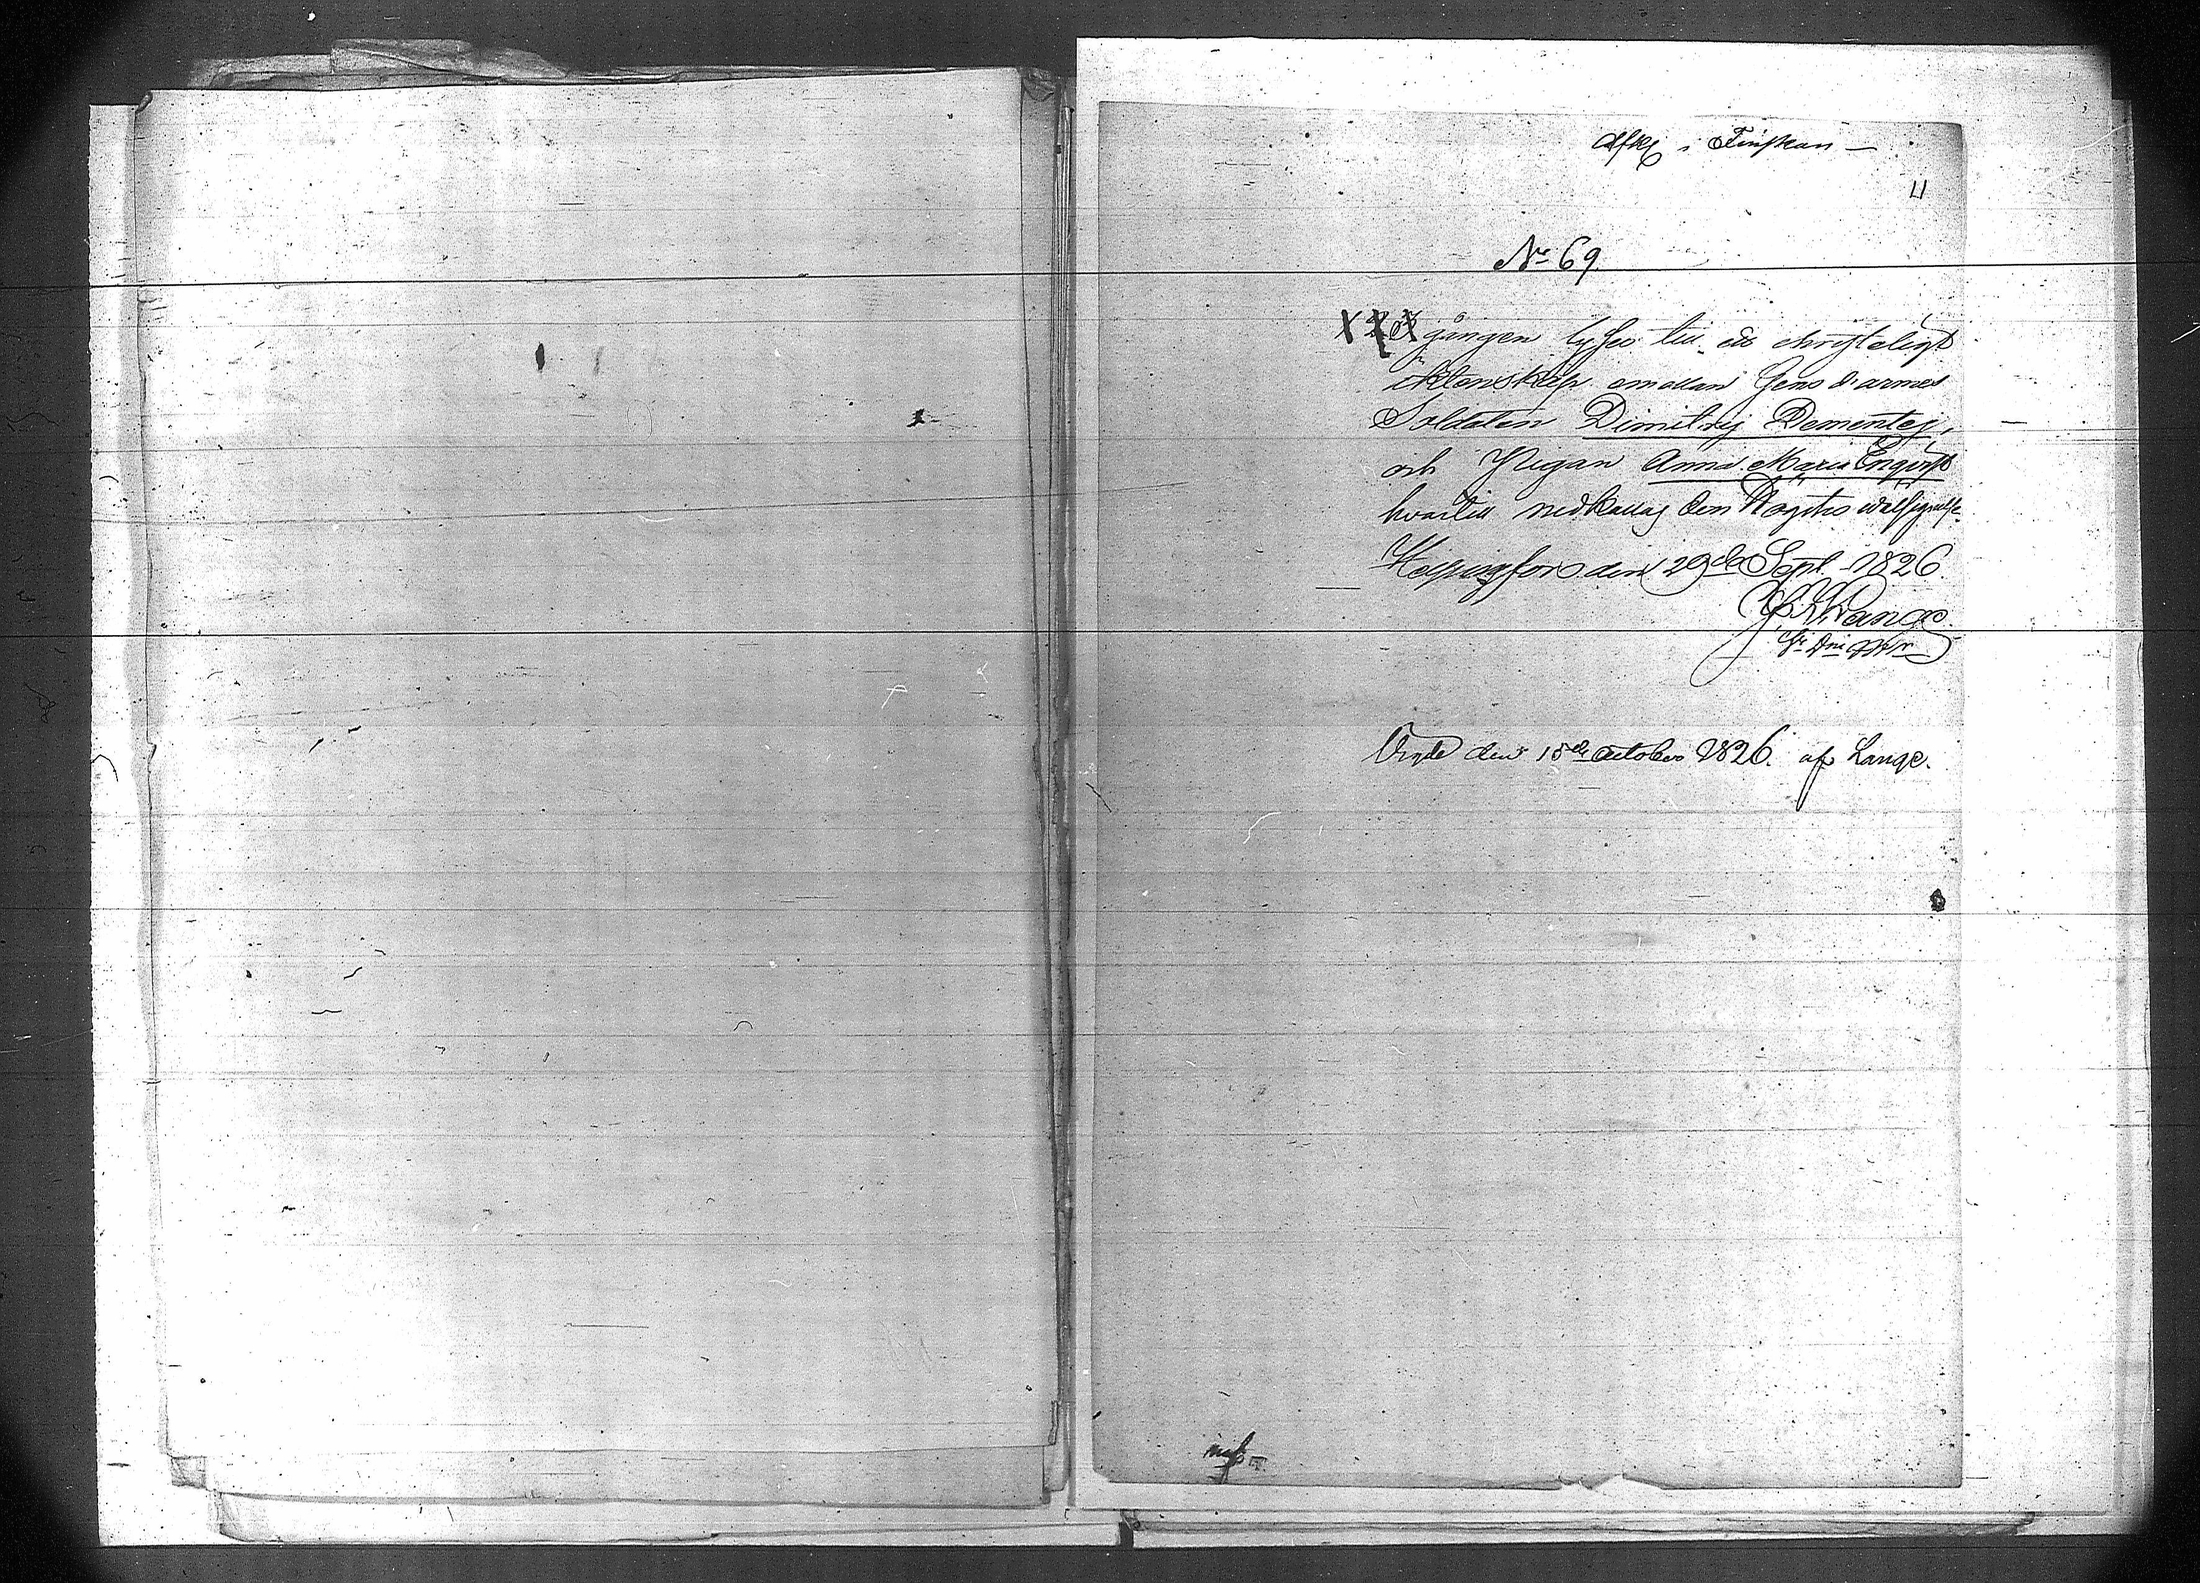 Afk i Finskan —
11
No 69.
X X X gången lyses till ett christeligt
äktenskap emellan Gens d'armes
Soldaten Dimitrij Dementej,
och Pigan Anna Maria Enqvist
hvartill nedkallas den Högstes välsignelse
Helsingfors den 29de Sept. 1826.
Lange
Vigde den 15de October 1826. af Lange.